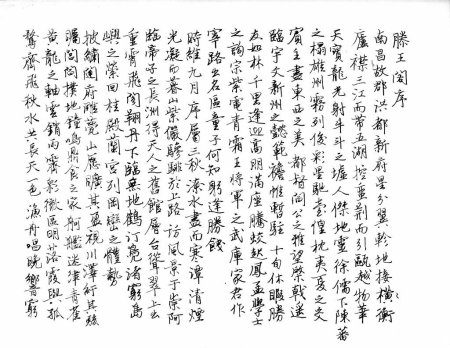 滕王閣序
南昌故郡洪都新府星分翼軫地接橫衡
廬襟三江而帶五湖控蠻荊而引甌越物華
天寶龍光射斗斗之墟人傑地靈徐儒下陳蕃
之榻雄州霧列俊彩星馳臺隍枕夷夏之交
賓主盡東西之美都督閻公之雅望棨戟遙
臨宇文新州之懿範襜帷暫駐十旬休暇勝
友如林千里逢迎高朋滿座騰蛟起鳳孟學士
之詞宗紫電青霜王將軍之武庫家君作
宰路出名區童子何知躬逢勝餞
時維九月序屬三秋潦水盡而寒潭清煙
光凝而暮山紫儼驂騑於上路訪風景于崇阿
臨帝子之長洲得天人之舊館層台聳翠上出
重霄飛閣翔丹下臨無地鶴汀鳧渚窮島
嶼之縈回桂殿蘭宮列岡巒之體勢
披繡闥俯雕甍山原曠其盈視川澤紆其駭
矚閭閻撲地鐘鳴鼎食之家舸艦迷津青雀
黃龍之軸雲銷雨霽彩徹區明落霞與孤
鶩齊飛秋水共長天一色漁舟唱晚響窮